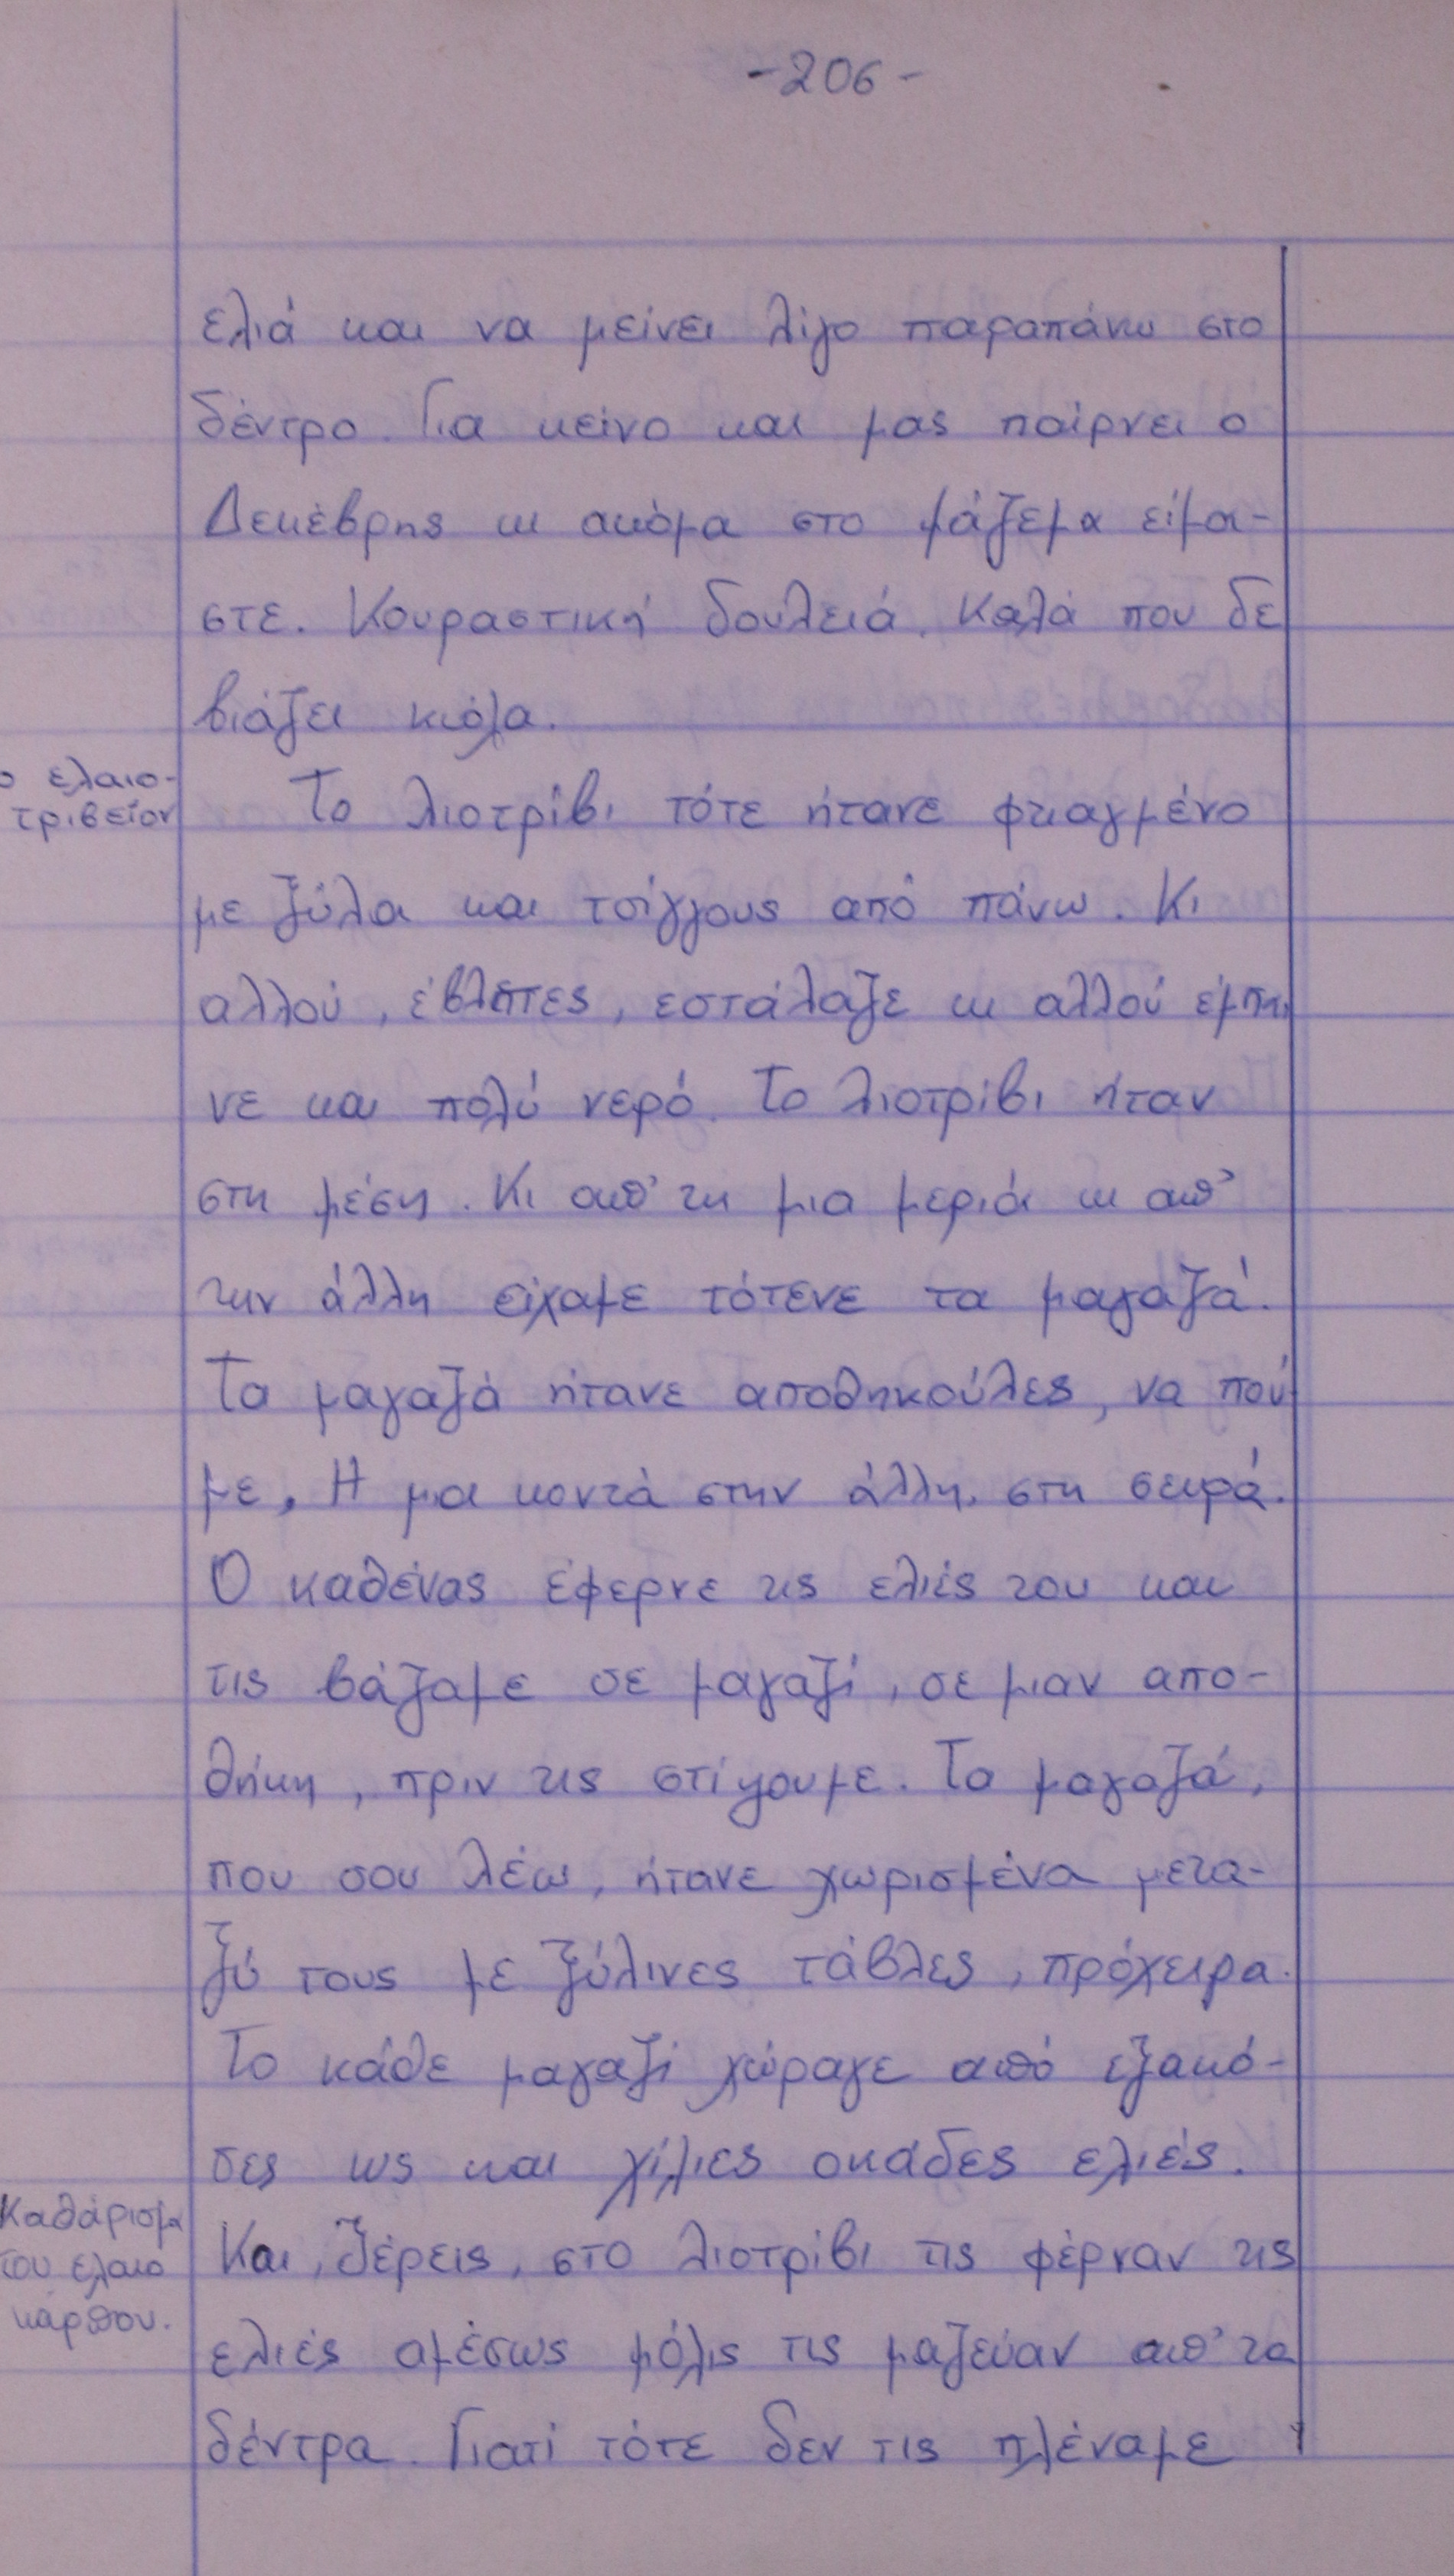 -206-
ελιά και να μείνει λίγο παραπάνω στο
δέντρο. Για κείνο και μας παίρνει ο
Δεκέβρης κι ακόμα στο μάζεμα είμα-
στε. Κουραστική δουλειά. Καλά που δε
βιάζει κιόλα.
ο ελαιο-
τριβείον
Το λιοτρίβι τότε ήτανε φτιαγμένο
με ξύλα και τσίγγους από πάνω. Κι
αλλού, έβλεπες, εστάλαζε κι αλλού έμπαι
νε και πολύ νερό. Το λιοτρίβι ήταν
στη μέση. Κι απ' τη μια μεριά κι απ'
την άλλη είχαμε τότενε τα μαγαζά.
Τα μαγαζά ήτανε αποθηκούλες, να πού
με, Η μια κοντά στην άλλη, στη σειρά.
Ο καθένας έφερνε τις ελιές του και
τις βάζαμε σε μαγαζί, σε μιαν απο-
θήκη, πριν τις στίψουμε. Τα μαγαζά,
που σου λέω, ήτανε χωρισμένα μετα-
ξύ τους με ξύλινες τάβλες, πρόχειρα.
Το κάθε μαγαζί χώραγε από εξακό-
σες ως και χίλιες οκάδες ελιές.
Καθάρισμα
του ελαιο
κάρπου.
Και, ξέρεις, στο λιοτρίβι τις φέρναν τις
ελιές αμέσως μόλις τις μαζεύαν απ' τα
δέντρα. Γιατί τότε δεν τις πλέναμε